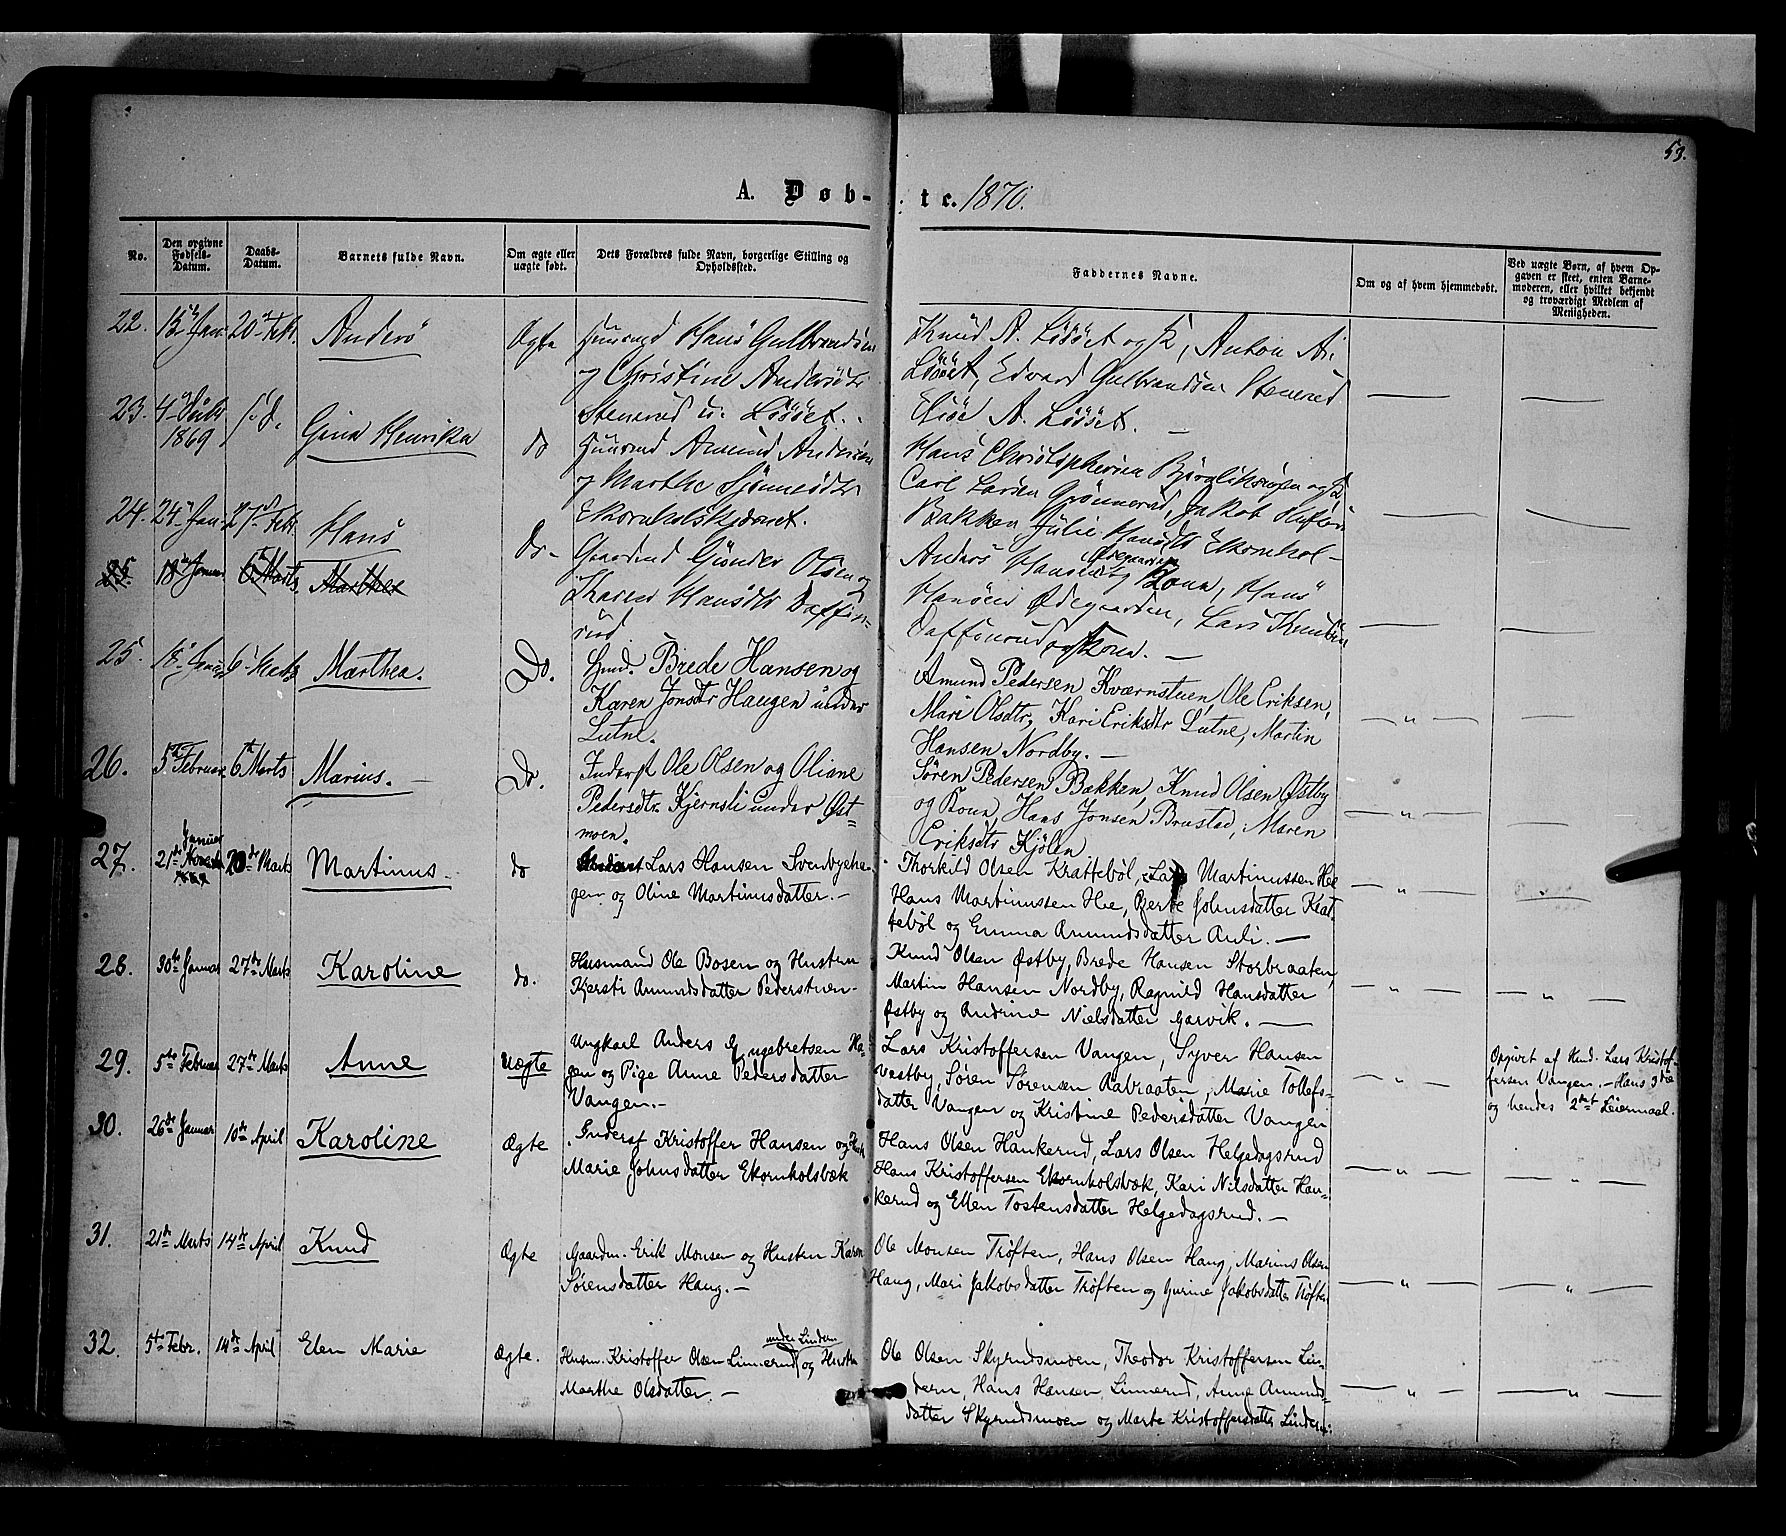 53.
A. Døb-
te. 1870.
No.
Den opgivne Fødsels-Datum.
Daabs-Datum.
Barnets fulde Navn.
Om ægte eller uægte født.
Dets Forældres fulde Navn, borgerlige Stilling og Opholdssted.
Faddernes Navne.
Om og af hvem hjemmedøbt.
Ved uægte Børn, af hvem Opgaven er skeet, enten Barnemoderen, eller hvilket bekjendt og troværdigt Medlem af Menigheden.
22. 20 Febr. Anders Ægte
Hans Gulbrandsen
og Christine Andersdtr
Stenerud u. Lôsset.
Knud A. Lôsset og K, Anton A.
Lôsset, Edvard Gulbrandsen Stenerud
Elise A. Lôsset. —
23. 4 1869 Gina Henrika do
Amund Andersen
og Marthe
Hans Christophersen
Carl Larsen Grønnerud, Jakob
Bakken Julie Hansdtr Ekornhol -
24. 24 Jan. 27 Febr. Hans Do -
Gaardmd Olsen og
Karen Hansdtr Daffin-
rud
Anders Hansen Ødegaarden og Kone, Hans
Hansen Ødegaarden, Lars Knudsen
Daffinrud og Kone. —
25. 18 Januar 6 Marts Marthea
25. 18 Januar 6 Marts Marthea. Do.
Hmd. Brede Hansen og
Karen Jonsdtr Haugen under
Lutne.
Amund Pedersen Kværnstuen, Ole Eriksen,
Mari Olsdtr, Kari Eriksdtr Lutne, Martin
Hansen Nordby. —
26. 5te Februar 6te Marts Marius. — Do.
Inderst Ole Olsen og Oliane
Pedersdtr. Kjernsli under Øst-
moen.
Søren Pedersen Bakken, Knud Olsen Østby
og Kone, Hans Jonsen Brustad, Maren
Eriksdtr Kjølen
27. 21de Januar 20de Marts Martinus. do
Lars Hansen Svenbyeha-
gen og Oline Martinusdatter. —
Thorkild Olsen Krattebøl, Lars Martinussen Hee
Hans Martinussen Hee, Berte Johnsdatter Krat-
tebøl og Emma Amundsdatter Auli. —
28. 30te Januar 27de Marts Karoline do.
Husmand Ole Bosen og Hustru
Kjersti Amundsdatter Pederstuen -
Knud Olsen Østby, Brede Hansen Storbraaten,
Martin Hansen Nordby, Ragnild Hansdatter
Østby og Andrine Nielsdatter Garvik. —
29. 5te Februar 27de Marts Anne Uægte
Ungkarl Anders Engebretsen Ha-
gen og Pige Anne Pedersdatter
Vangen. —
Lars Kristoffersen Vangen, Syver Hansen
Vestby, Søren Sørensen Aabraaten, Marie Tollefs-
datter Vangen og Kristine Pedersdatter Vangen
Opgivet af Hmd. Lars Kristof-
fersen Vangen. — Hans 3die
og hendes 2det Leiermaal.
30. 26de Januar 10de April Karoline Ægte
Inderst Kristoffer Hansen og Hustr
Marie Johnsdatter Ekornholsbæk
Hans Olsen Hankerud, Lars Olsen Helgedagsrud
Hans Kristoffersen Ekornholsbæk, Kari Nilsdatter Han-
kerud og Ellen Tostensdatter Helgedagsrud. —
31. 21de Marts 14de April Knud Ægte
Gaardm. Erik Monsen og Hustru Karen
Sørensdatter Haug. —
Ole Monsen Trøften, Hans Olsen Haug, Marius Olsen
Haug, Mari Jakobsdatter Trøften og Gurine Jakobsdatter Trøften
32. 5te Febr. 14de April Elen Marie Ægte.
Husm. Kristoffer Olsen Linnerud under Lindern og Hustru
Marthe Olsdatter. —
Ole Olsen Skyrudsmoen, Theodor Kristoffersen Lin-
dern, Hans Hansen Linnerud, Anne Amunds-
datter Skyrudsmoen og Marte Kristoffersdatter Lindern.